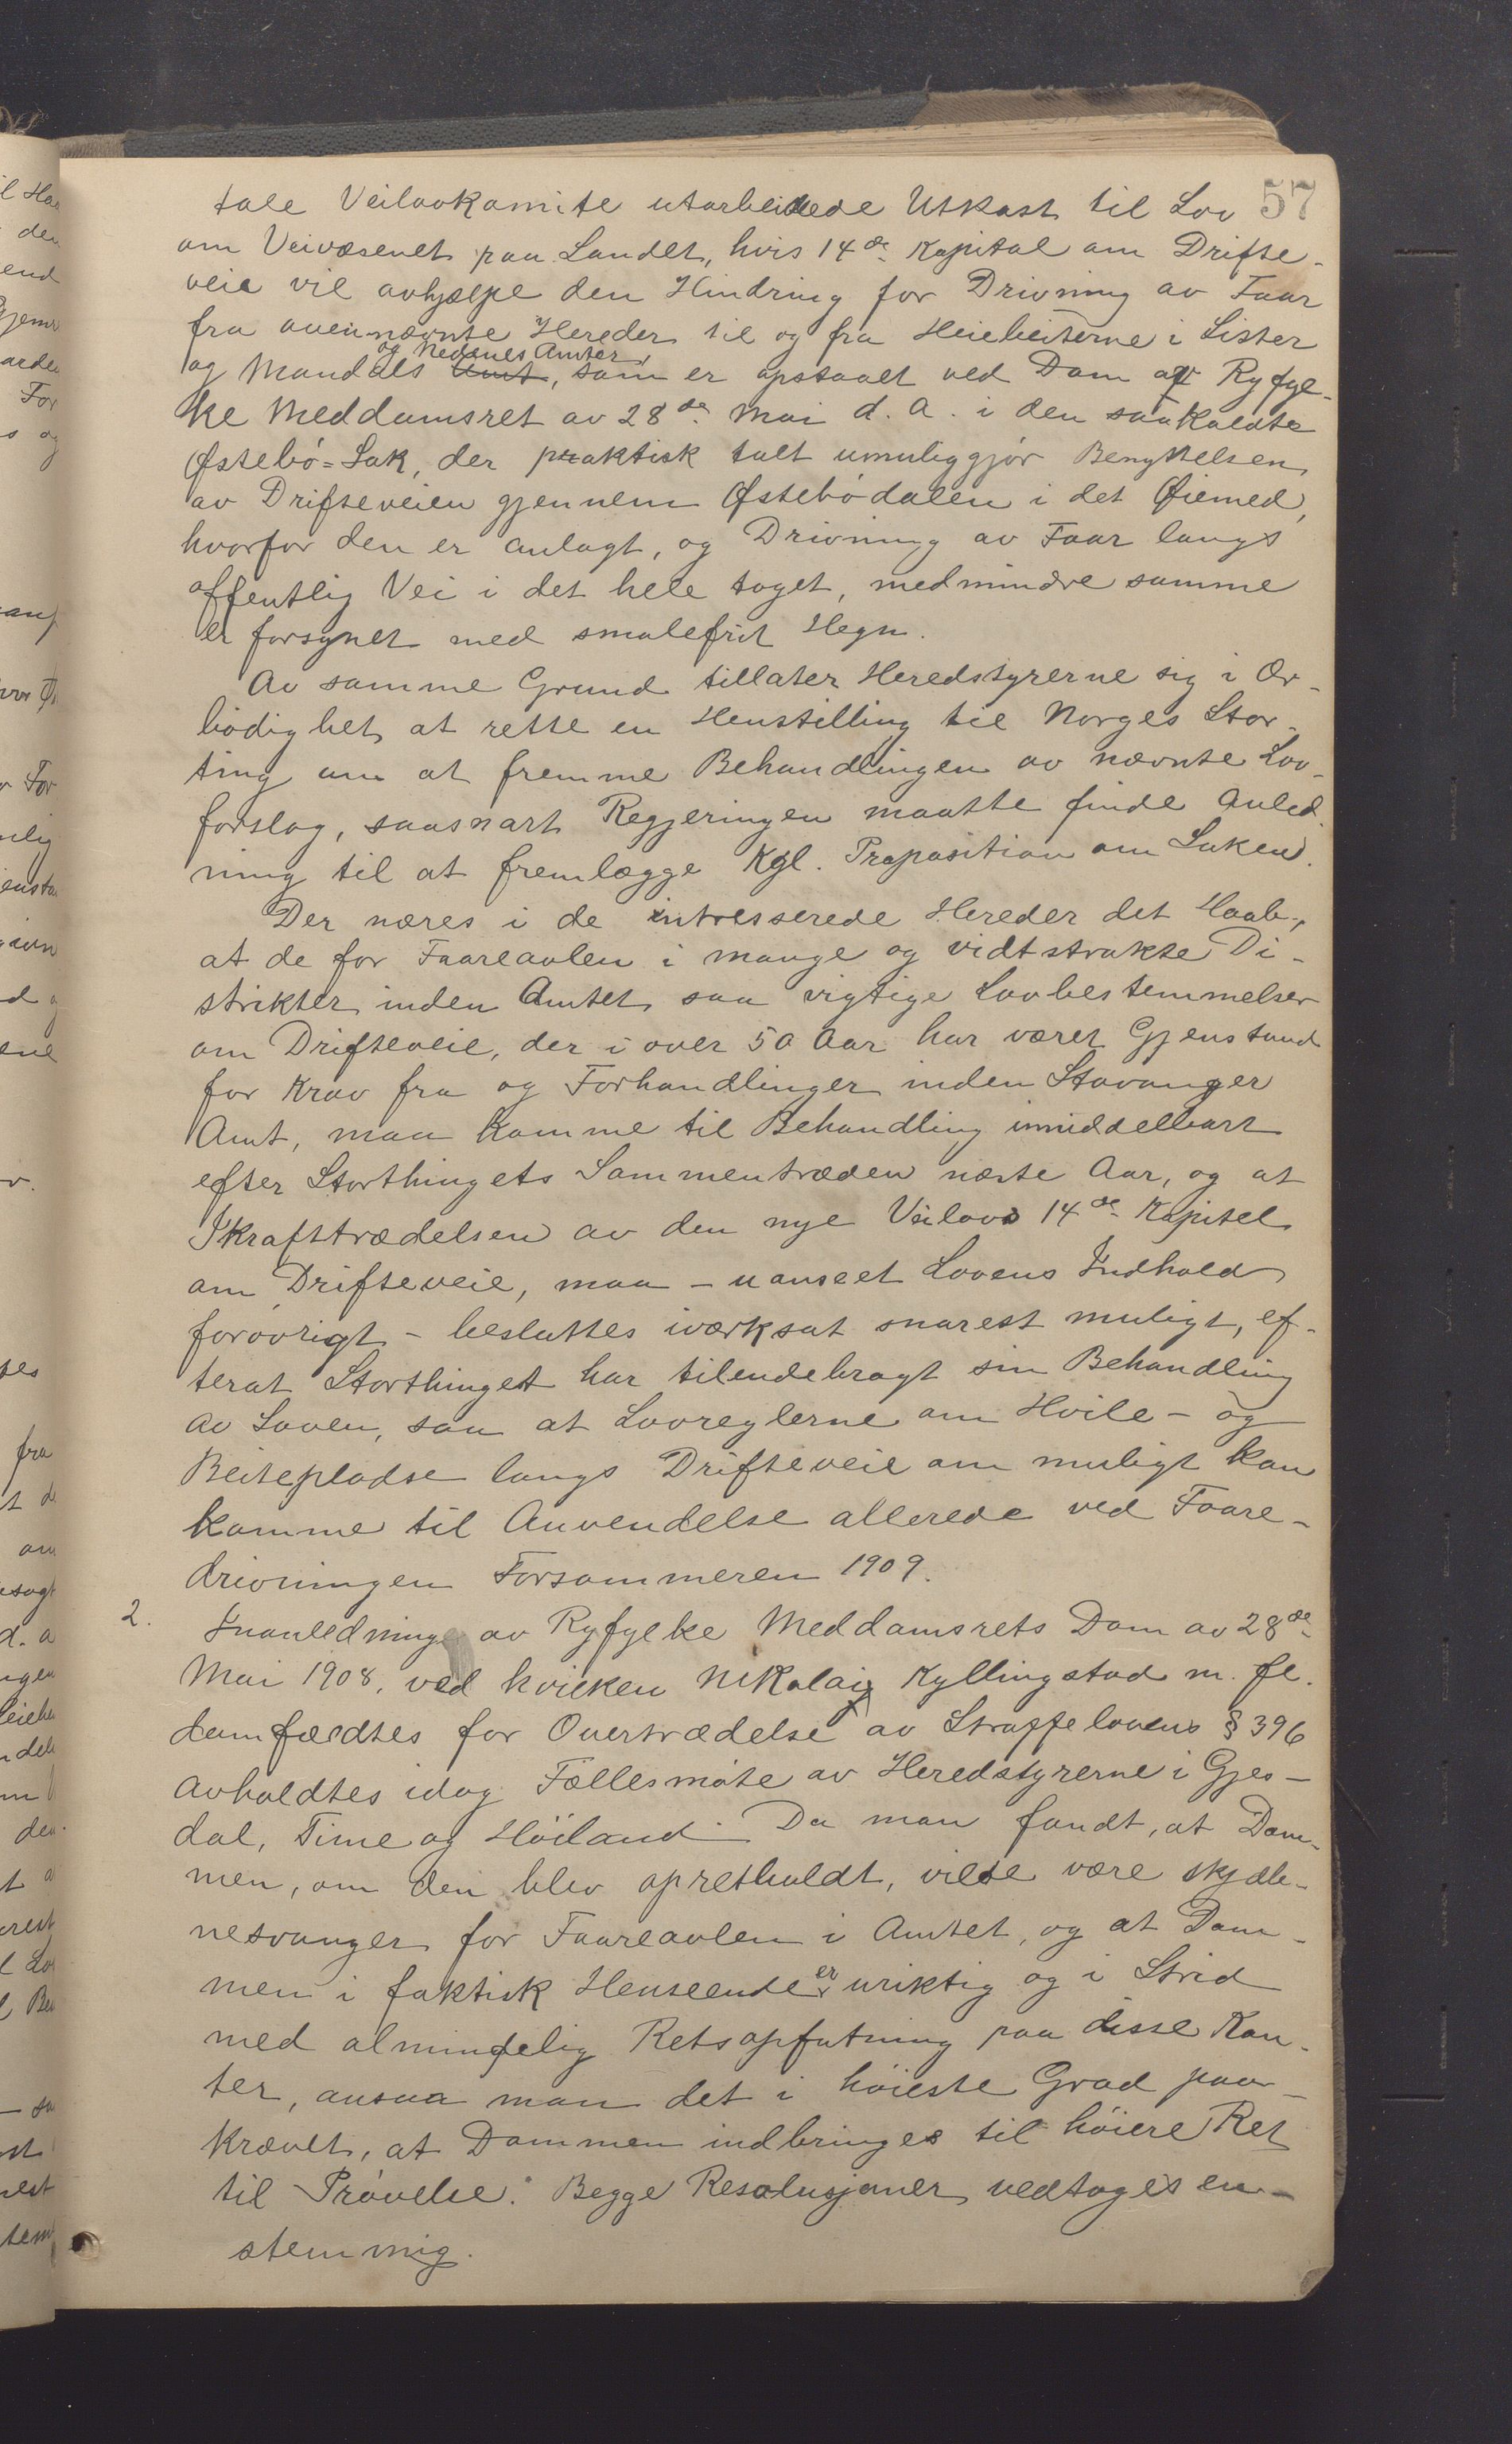 57
tale Veilovkomite utarbeidede Utkast til Lov
om Veivæsenet paa Landet, hvis 14de Kapital om Drifte-
veie vil avhjælpe den Hindring for Drivning av Faar
fra ovennævnte Hereder til og fra Heiebeiterne i Lister
og Nedenes Amter,
og Mandals Amt, som er opstaaet ved Dom af Ryfyl-
ke Meddomsret av 28de Mai d. A. i den saakaldte
Østebö=Sak, der praktisk talt umuliggjör Benyttelsen
av Drifteveien gjennem Østebödalen i det Øiemed,
hvorfor den er anlagt, og Drivning av Faar langs
offentlig Vei i det hele taget, medmindre samme
er forsynet med smalefrit Hegn.
Av samme Grund tillater Heredstyrerne sig i Ær-
bödighet at rette en Henstilling til Norges Stor-
ting om at fremme Behandlingen av nævnte Lov-
forslag, saasnart Regjeringen maatte finde Anled-
ning til at fremlægge Kgl. Proposition om Saken.
Der næres i de intresserede Hereder det Haab,
at de for Faareavlen i mange og vidtstrakte Di-
strikter inden Amtet saa vigtige Lovbestemmelser
om Drifteveie, der i over 50 Aar har været Gjenstand
for Krav fra og Forhandlinger inden Stavanger
Amt, maa komme til Behandling imiddelbart
efter Storthingets Sammentræden næste Aar, og at
Ikrafttrædelsen av den nye Veilovs 14de Kapitel
om Drifteveie, maa - uanseet Lovens Indhold
forövrigt - besluttes iværksat snarest muligt, ef-
terat Storthinget har tilendebragt sin Behandling
av Loven, saa at Lovreglerne om Hvile- og
Beitepladse langs Drifteveie om muligt kan
komme til Anvendelse allerede ved Faare-
drivningen Forsommeren 1909.
2. Inanledning av Ryfylke Meddomsrets Dom av 28de
Mai 1908, ved hvilken Nikolai Kyllingstad m. fl.
domfældtes for Overtrædelse av Straffelovens § 396
avholdtes idag Fællesmöte av Heredstyrerne i Gjes-
dal, Time og Höiland. Da man fandt, at Dom-
men, om den blev opretholdt, vilde være skjæb-
nesvanger for Faareavlen i Amtet, og at Dom-
men i faktisk Henseende er uriktig og i Strid
med almindelig Retsopfatning paa disse Kan-
ter, ansaa man det i höieste Grad paa-
krævet, at Dommen indbringes til höiere Ret
til Prövelse. Begge Resolusjoner vedtoges en-
stemmig.